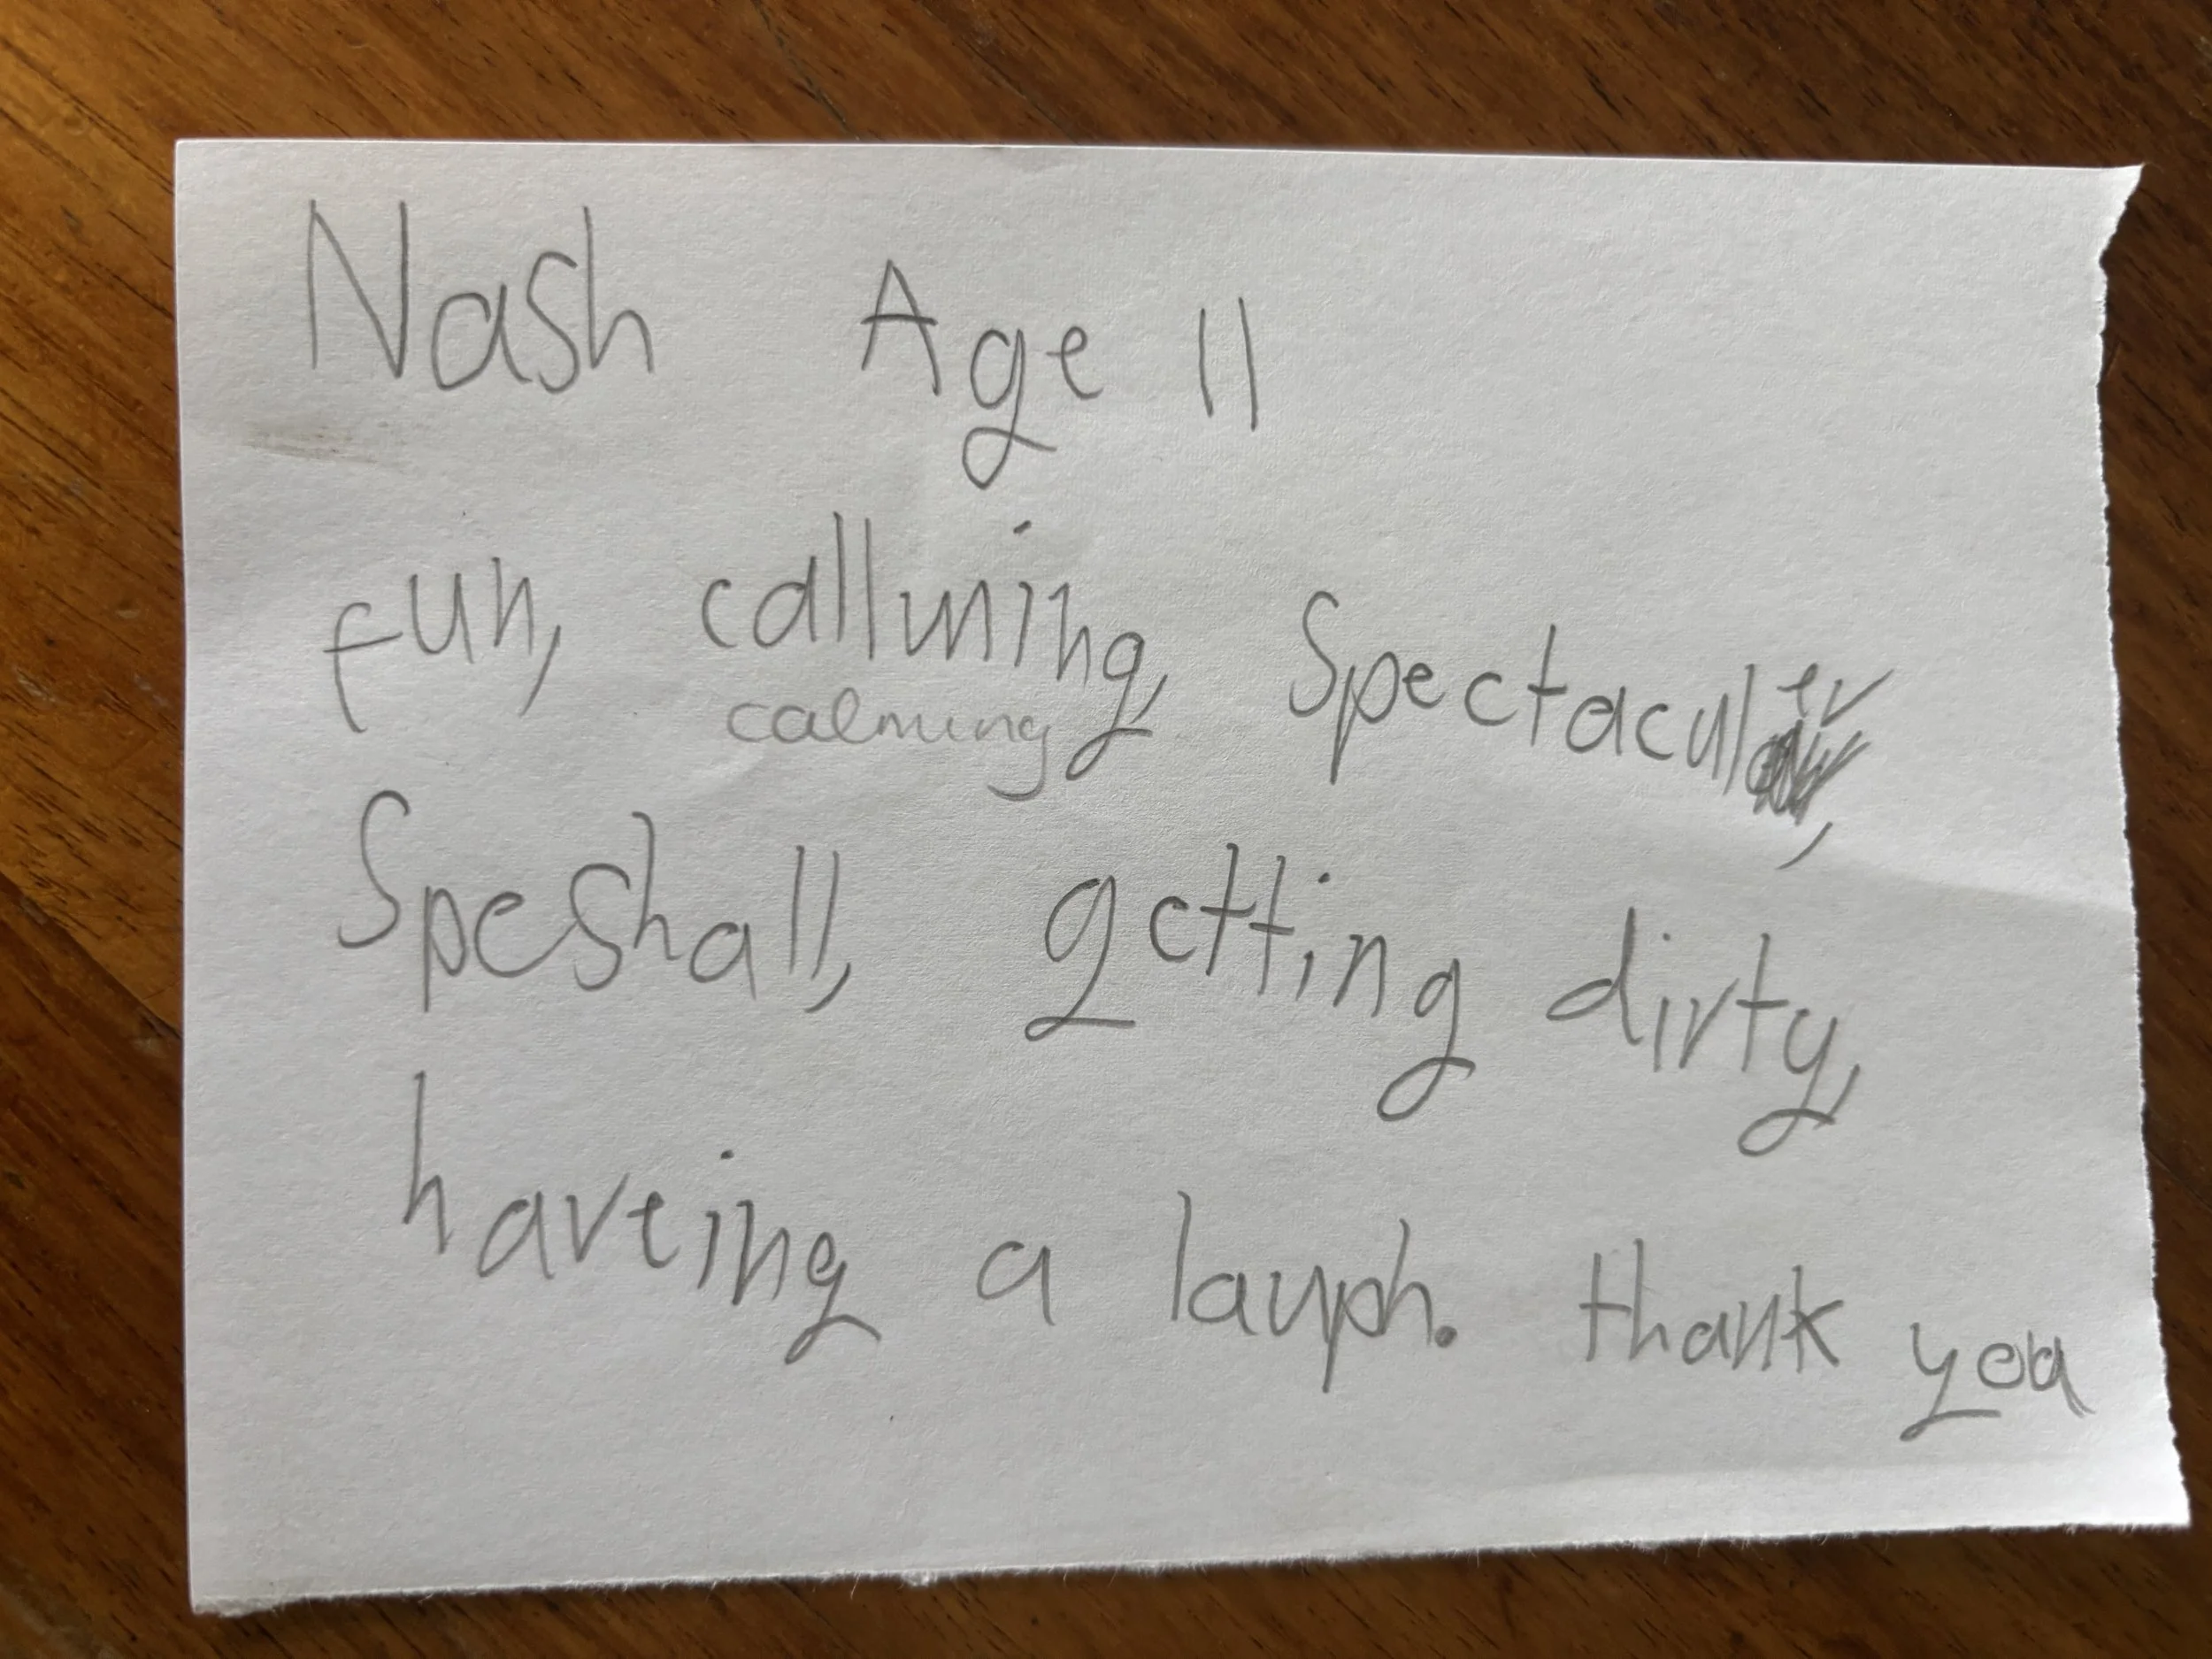 Nash Age 11
fun, callming, Spectaculer,
calming
Speshall, getting dirty,
haveing a lauph. thank you